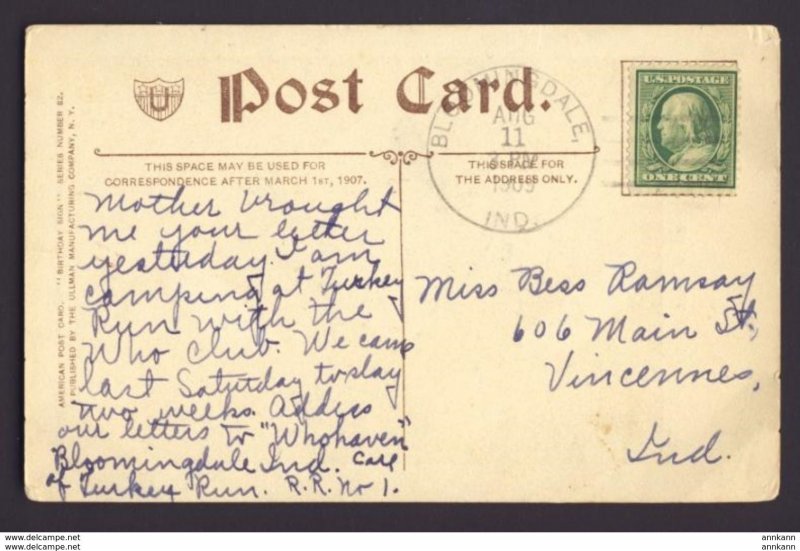 U
Post Card.
THIS SPACE MAY BE USED FOR
CORRESPONDENCE AFTER MARCH 1ST, 1907.
THIS SPACE IS FOR
THE ADDRESS ONLY.
BLOOMINGDALE,
AUG
11
1909
IND.
U.S. POSTAGE
ONE CENT
AMERICAN POST CARD. "BIRTHDAY SIGN" SERIES NUMBER 82.
PUBLISHED BY THE ULLMAN MANUFACTURING COMPANY, N. Y.
Mother brought
me your letter
yesterday. I am
camping at Turkey
Run with the
Who Club. We came
last Saturday to stay
two weeks. Address
our letters to "Whohaven"
Bloomingdale Ind. Care
of Turkey Run. R.R. No 1.
Miss Bess Ramsay
606 Main St.,
Vincennes,
Ind.
www.hippostcard.com/store/ankann
ankann
ankann